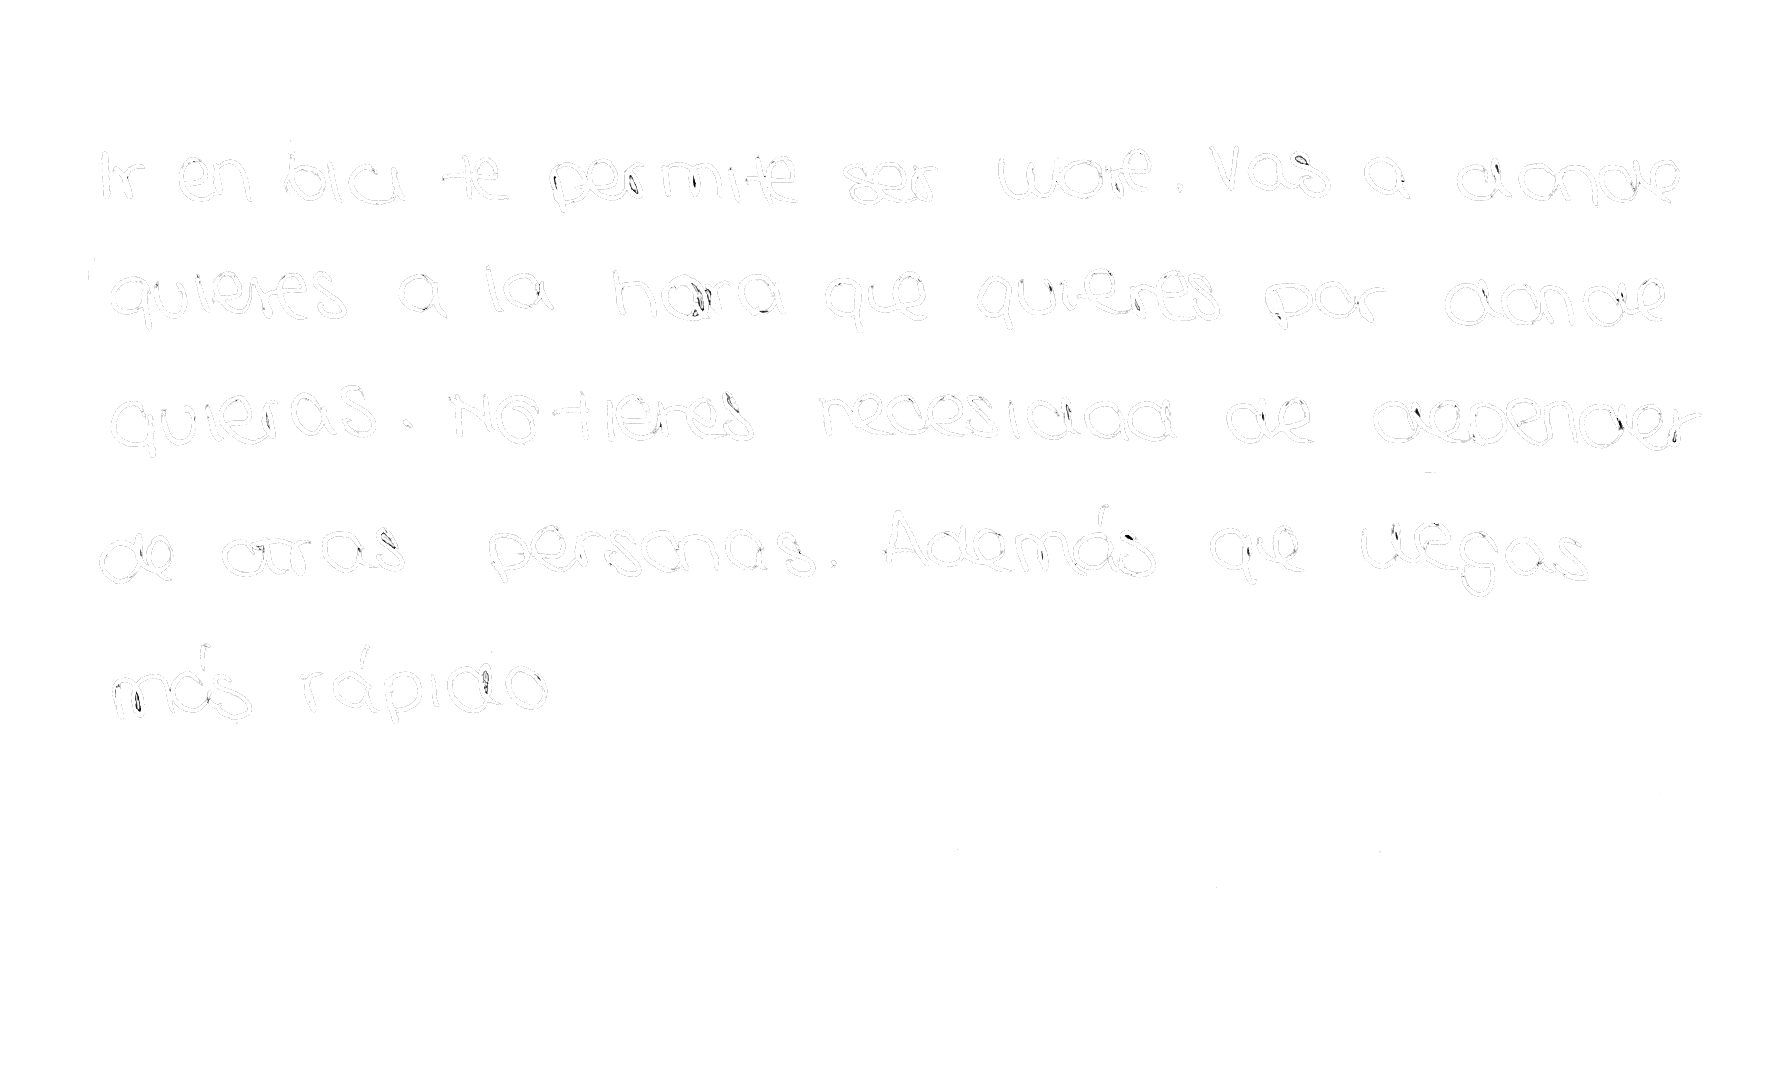 Ir en bici te permite ser libre. Vas a donde
quieres a la hora que quieres por donde
quieras. No tienes necesidad de depender
de otras personas. Además que llegas
más rápido